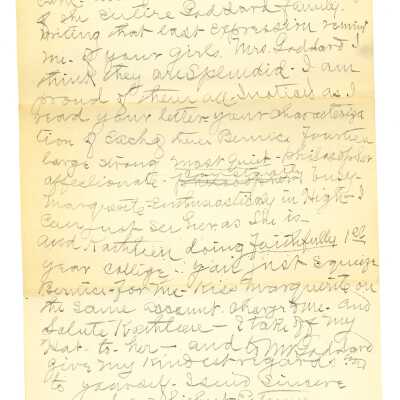 of the entire Goddard family.
writing that last expression remind
me of your girls. Mrs. Goddard I
think they are splendid - I am
proud of them all. I notice as I
read your letter your characteriza
tion of each of them Bernice fourteen
large strong most quiet - philosopher
affectionate - constantly busy -
Marguerite - Enthusiastically in High - I
Can just see her as she is -
and Kathleen doing faithfully 1st
year college - just squeeze
Bernice - for me - Kiss Marguerite on
the same account charge to me - and
Salute Kathleen - I take off my
Hat - to her - and to Mr. Goddard
give my kindest regards - and
to yourself - Sincere